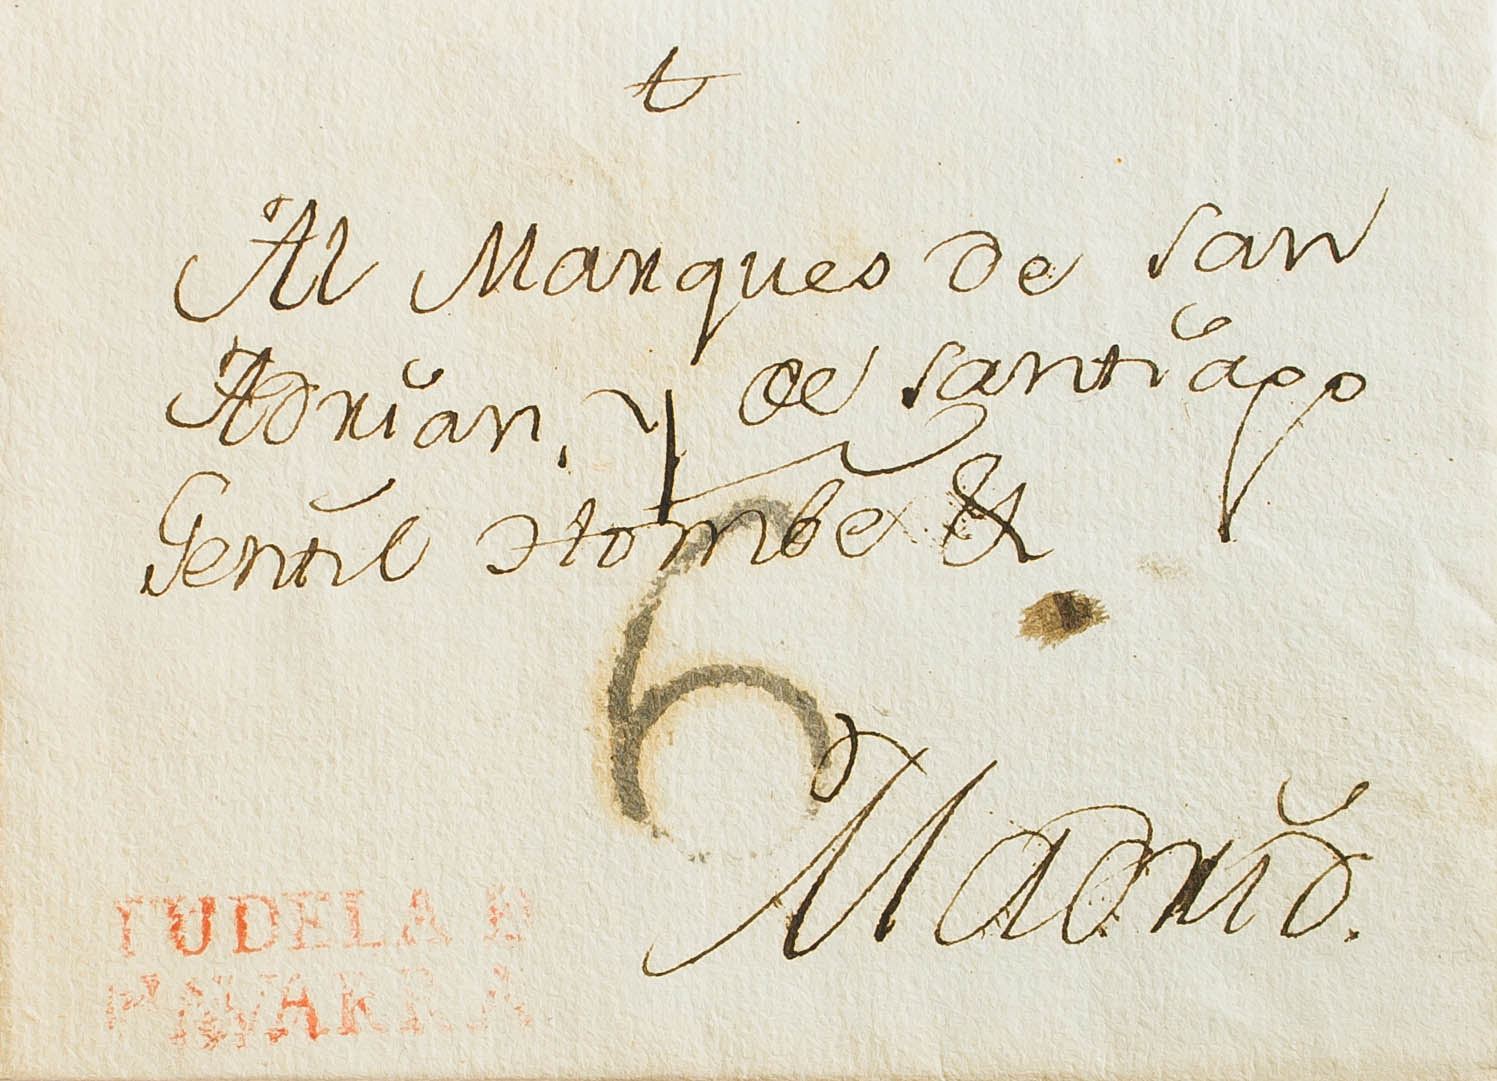 Al Marques de San
Adrian, y de Santiago
Gentil Hombe &
6
Madrid.
TUDELA E
NAVARRA